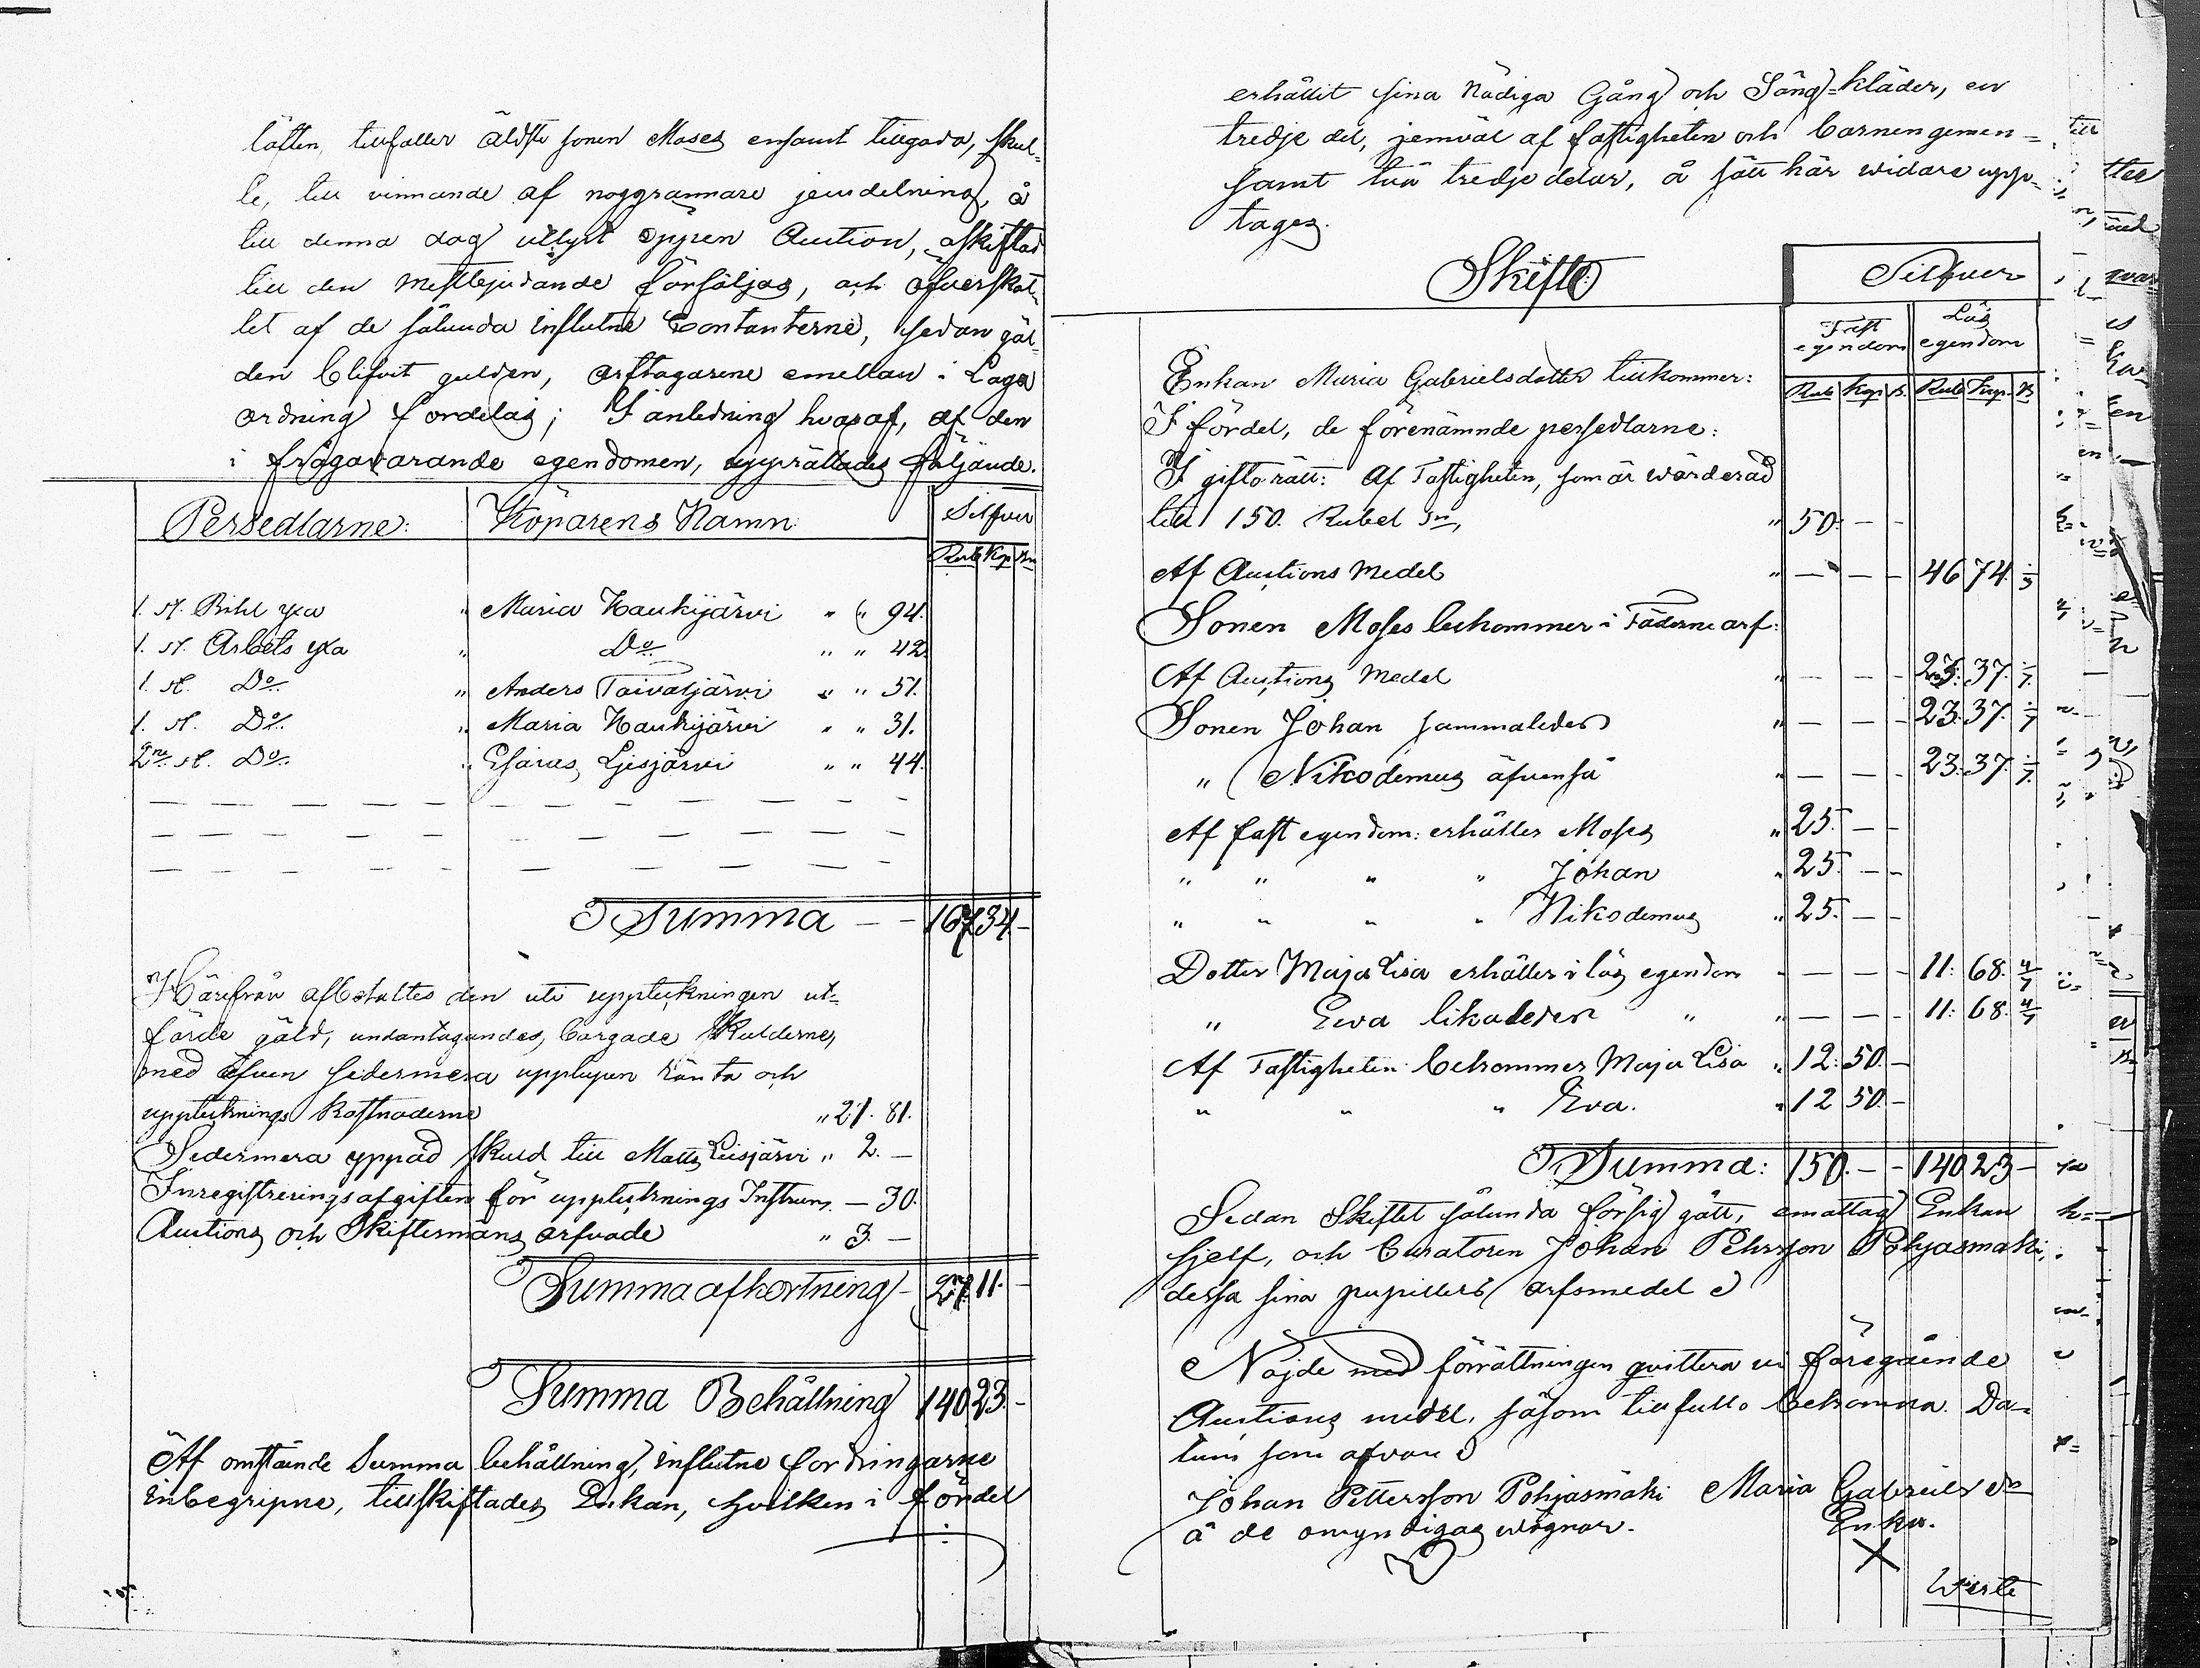 låften, tillfaller äldste sonen Moses ensamt tillgodo, skul-
le, till vinnande af noggrannare jemdelning, å
till denna dag utlyst öppen Auction, oskiftad
till den mestbjudande försäljas, och öfverskot-
tet af de sålunda influtne Contanterne, sedan gäl-
den blifvit gulden, arftagarene emellan i Laga
ordning fördelas; I anledning hvaraf, af den
i frågavarande egendomen, upprättades följande.
Persedlarne: Köparens Namn Silfver
Rub Kop
1. st. Bihl yxa " Maria Haukijärvi " " 94.
1. st. Arbets yxa " Do " " 42
1. st. Do " Anders Taivaljärvi " " 51.
1. st. Do " Maria Haukijärvi " " 31.
2ne st. Do " Esaias Lisjärvi " " 44.
Summa — 167 34 —
Härifrån afbetaltes den uti uppteckningen ut-
förde gäld, undantagandes, borgade Skulderne,
med äfven sedermera upplupen ränta och
uppteknings Kostnaderne " 21. 81.
Sedermera yppad skuld till Matts Liisjärvi " 2. —
Inregistreringsafgiften för uppteknings Instrum. — 30.
Auctions och Skiftesmäns arfvode " 3. —
Summa afkortning — 27. 11. —
Summa Behållning 140 23. —
Af omstående Summa behållning, influtne fordringarne
inbegripne, tillskiftades Enkan, hvilken i fördel
erhållit sina nödiga Gång och Säng-kläder, en
tredje del, jemväl af fastigheten och barnen gemen-
samt två tredje delar, å sätt här widare upp-
tages.
Skifte Silfver
Fast egendom Lös egendom
Rub Kop. Rub Kop.
Enkan Maria Gabrielsdotter tillkommer:
I fördel, de förenämnde persedlarne:
I giftorätt: Af Fastigheten, som är wärderad
till 150. Rubel Sr, " 50. — —
Af Auctions Medel " — — — 46 74 1/3
Sonen Moses bekommer i Fäderne arf:
Af Auctions Medel " — — — 23. 37. 1/7.
Sonen Johan sammaledes " — — — 23. 37. 1/7
" Nikodemus äfvenså " — — — 23. 37. 1/7.
Af fast egendom: erhåller Moses " 25. — —
" " " " Johan " 25. — —
" " " " Nikodemus " 25. — —
Dotter Maja Lisa erhåller i lös egendom — — — 11: 68. 4/7
" Ewa likaledes " " — — — 11: 68. 4/7
Af Fastigheten bekommer Maja Lisa " 12: 50. —
" " " Eva. " 12 50. —
Summa: 150. — — 140 23 —
Sedan Skiftet sålunda försig gått, emottog Enkan
sjelf, och Curatoren Johan Pehrsson Pohjasmäki,
dessa sina pupillers arfsmedel
Nöjde med förrättningen qvittera vi föregående
Auctions medel, såsom tillfullo bekomna. Da-
tum som ofvan
Johan Pettersson Pohjasmäki Maria Gabriels dr
å de omyndigas wägnar. Enka.
X
Werte